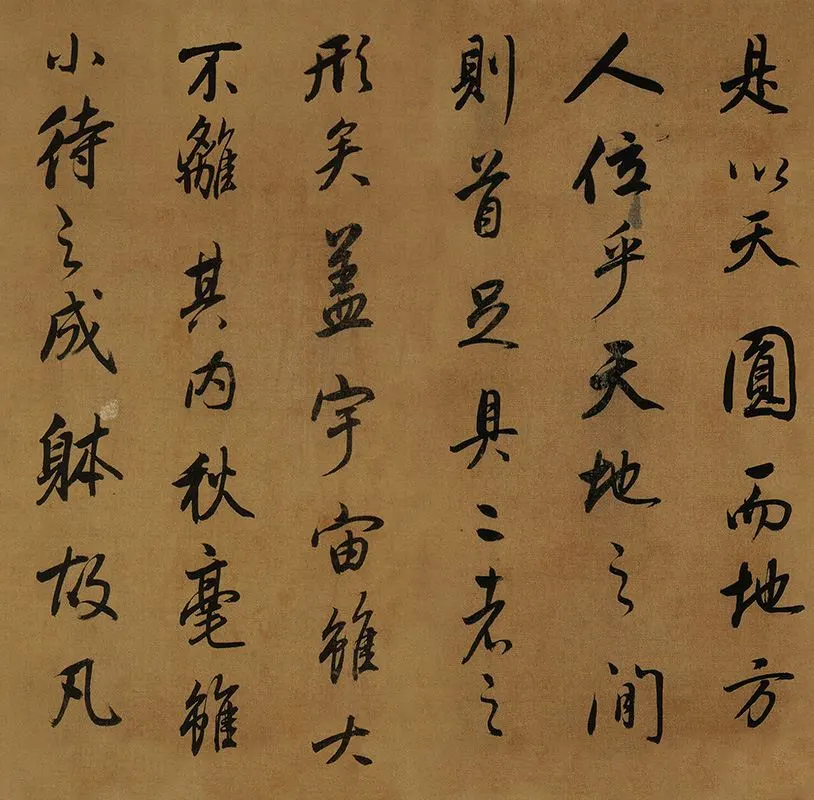 是以天圓而地方
人位乎天地之間
則首足具二者之
形矣蓋宇宙雖大
不離其内秋毫雖
小待之成躰故凡